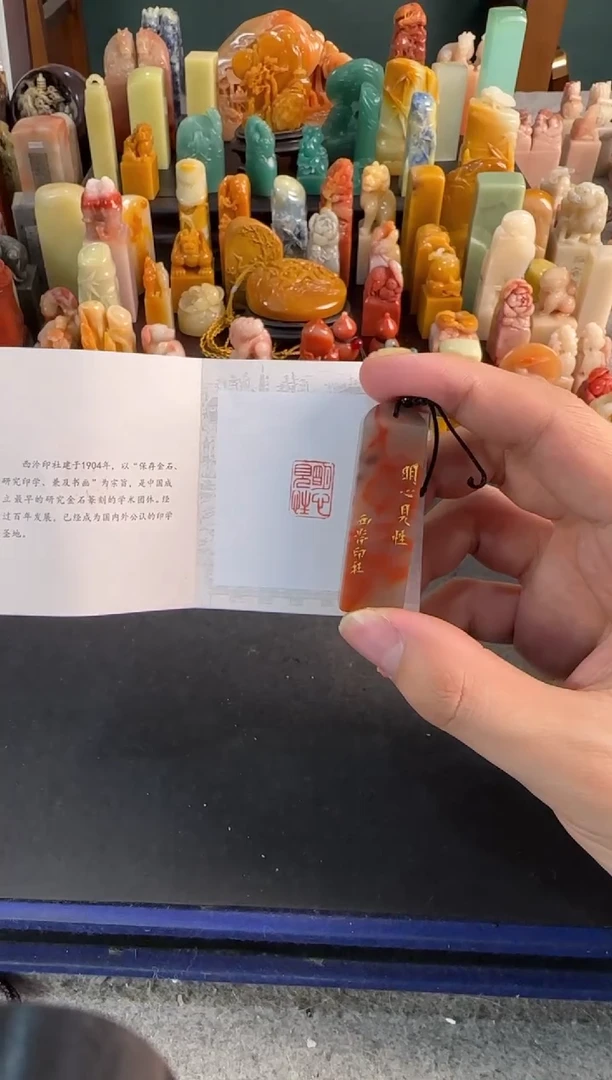 西泠印社建于1904年，以“保存金石、
研究印学，兼及书画”为宗旨，是中国成
立最早的研究金石篆刻的学术团体。经
过百年发展，已经成为国内外公认的印学
圣地。
明心
見性
明心見性
西泠印社